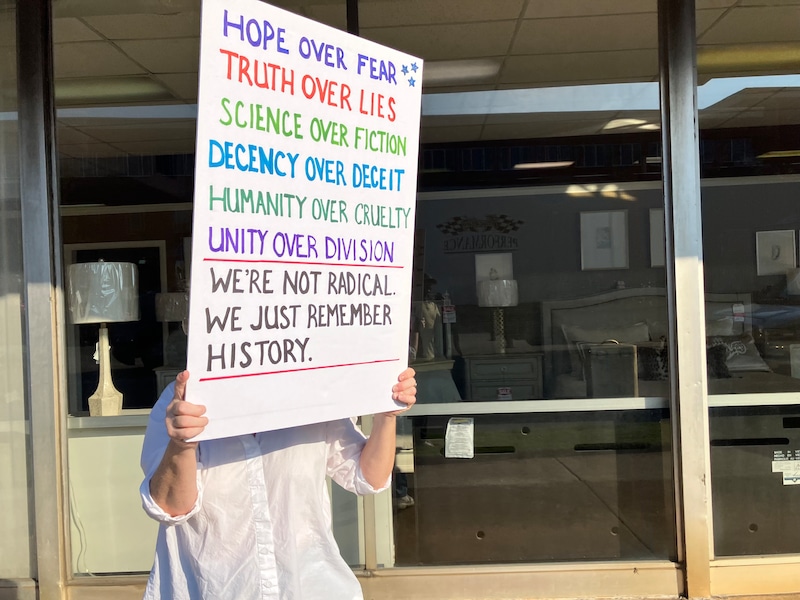 HOPE OVER FEAR
TRUTH OVER LIES
SCIENCE OVER FICTION
DECENCY OVER DECEIT
HUMANITY OVER CRUELTY
UNITY OVER DIVISION
WE'RE NOT RADICAL.
WE JUST REMEMBER
HISTORY.
PERFORMANCE